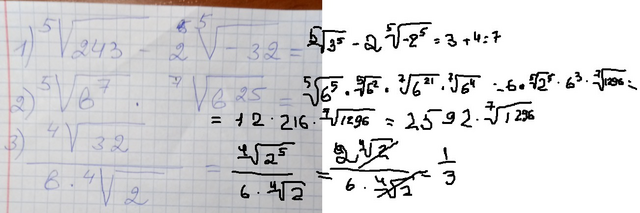 1) ⁵√243 - 2 ⁵√-32 = ⁵√3⁵ - 2 ⁵√-2⁵ = 3 + 4 = 7
2) ⁵√6⁷ · ⁷√6²⁵ = ⁵√6⁵ · ⁵√6² · ⁷√6²¹ · ⁷√6⁴ = 6 · ⁵√2⁵ · 6³ · ⁷√1296 =
= 12 · 216 · ⁷√1296 = 2592 · ⁷√1296
3) ⁴√32 / 6 · ⁴√2 = ⁴√2⁵ / 6 · ⁴√2 = 2 ⁴√2 / 6 · ⁴√2 = 1/3